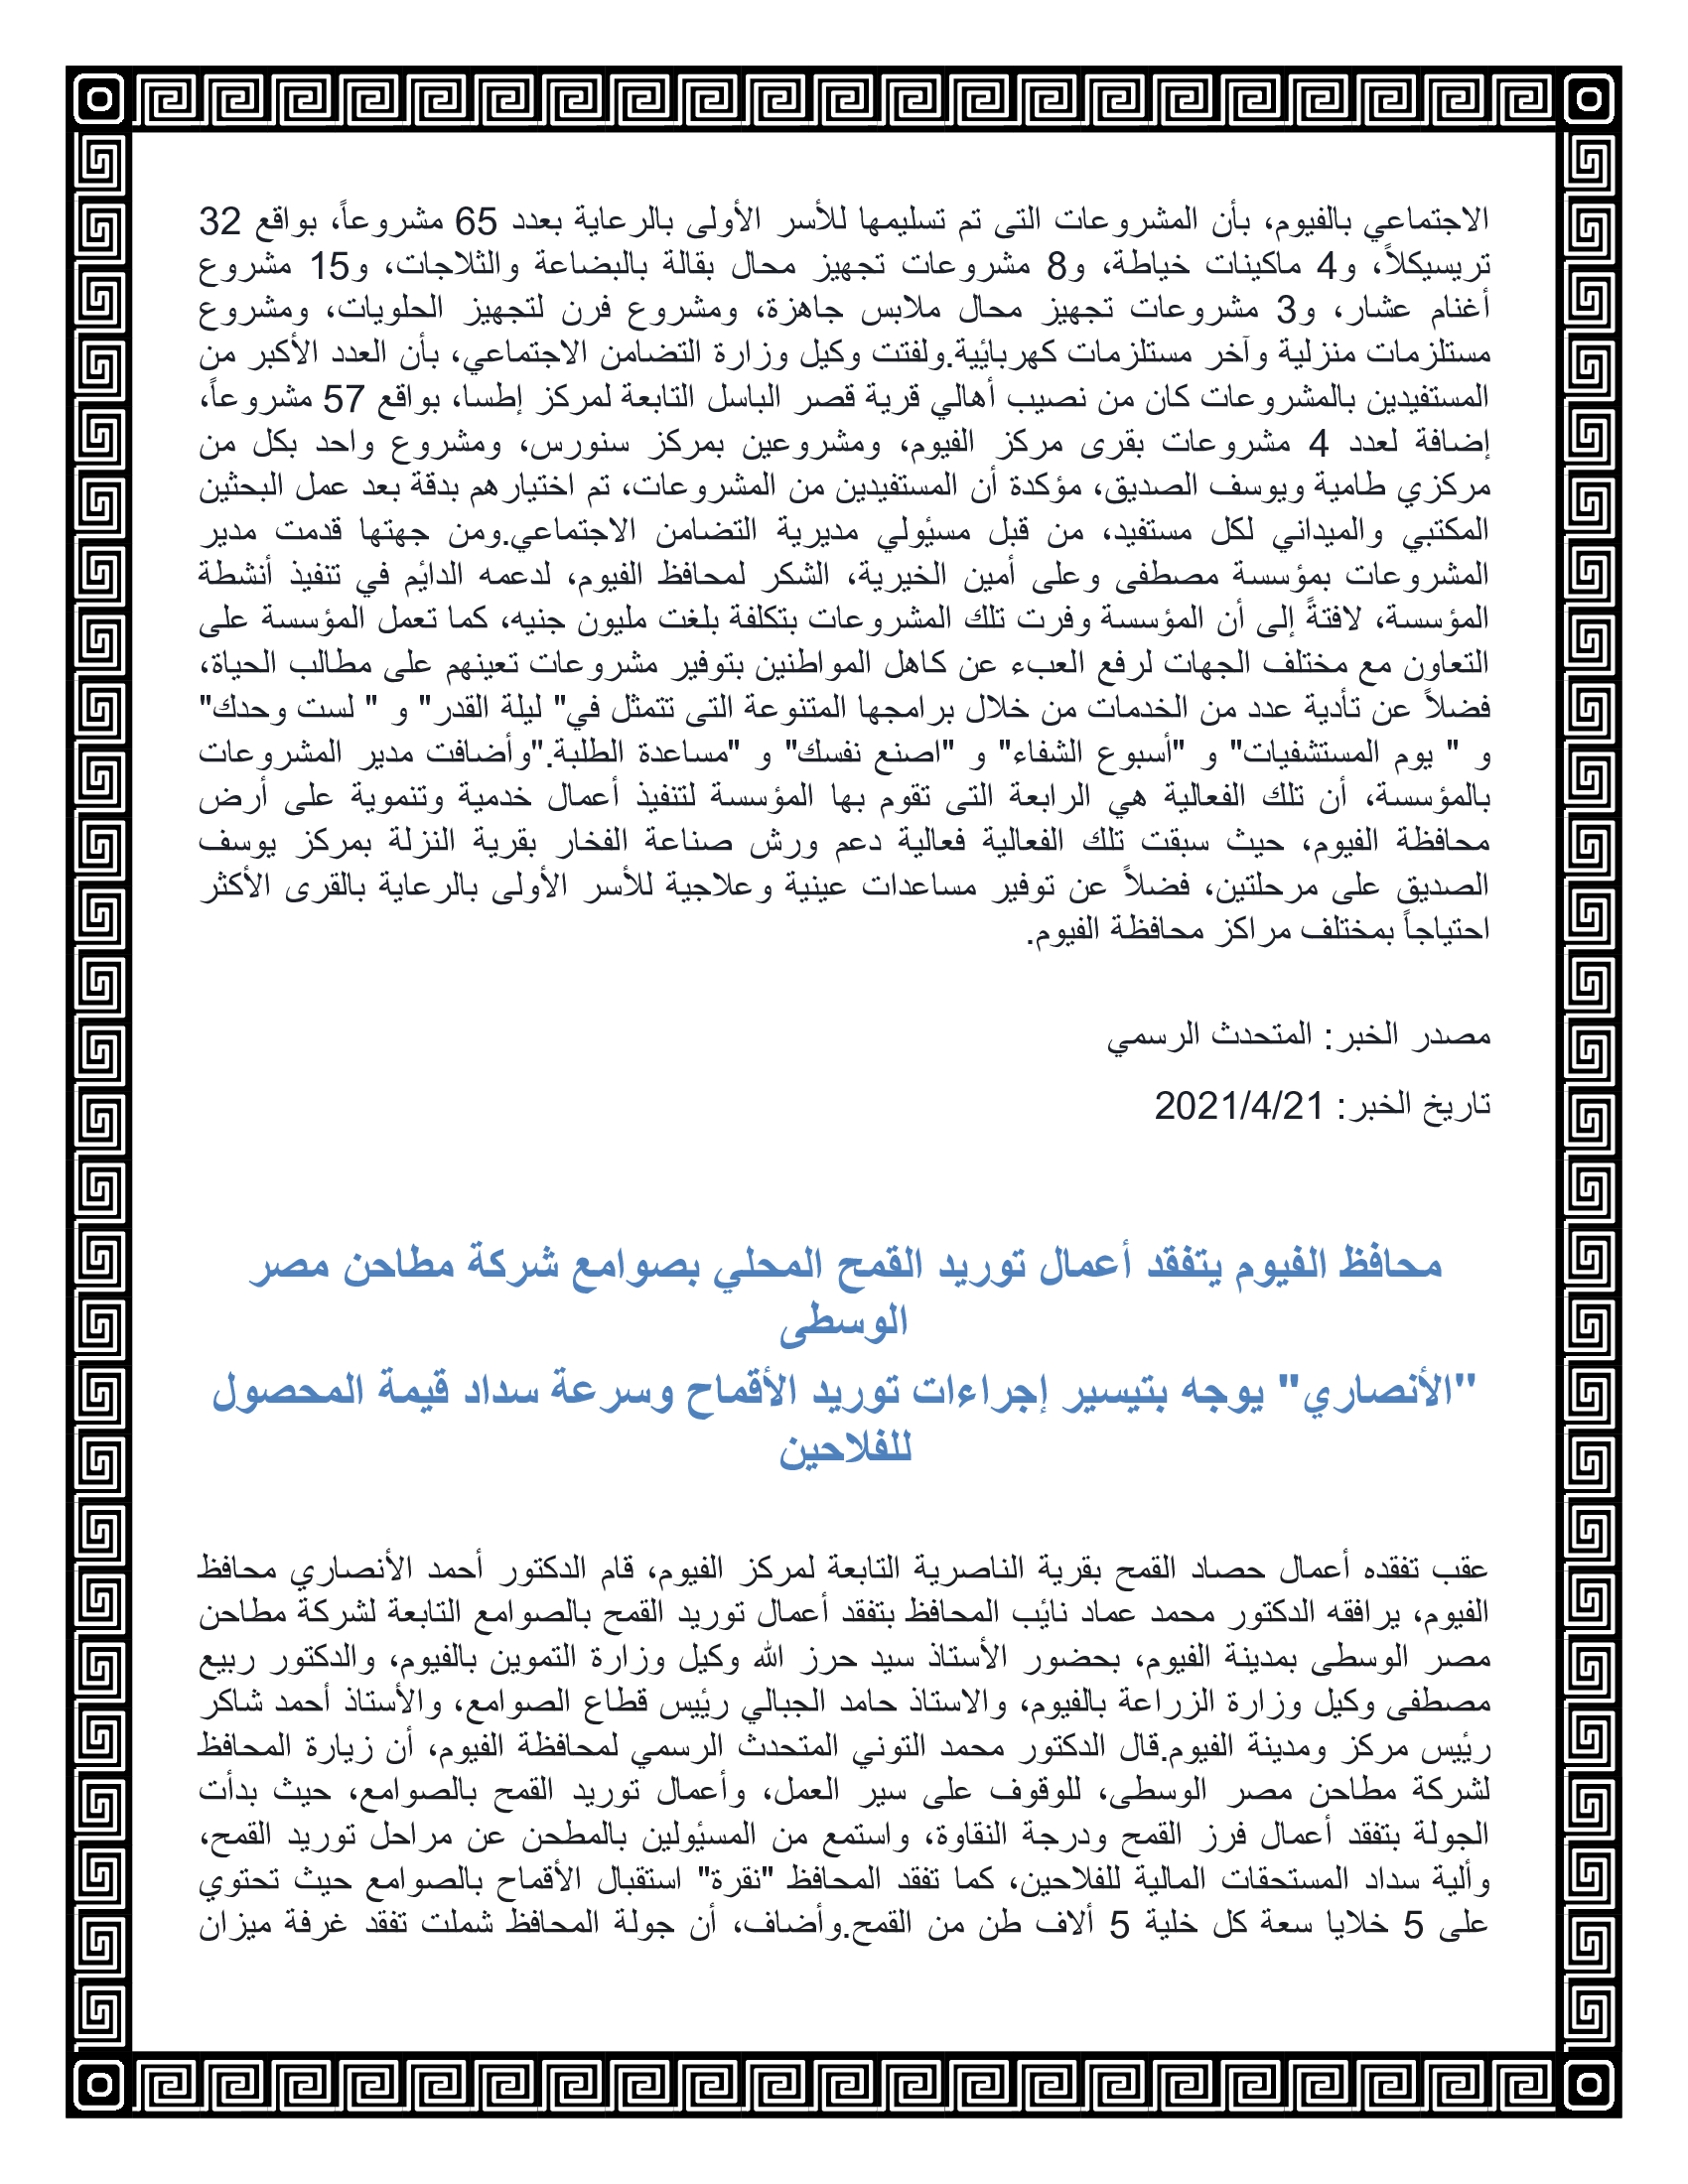 الاجتماعي بالفيوم، بأن المشروعات التى تم تسليمها للأسر الأولى بالرعاية بعدد 65 مشروعاً، بواقع 32
تريسيكلاً، و4 ماكينات خياطة، و8 مشروعات تجهيز محال بقالة بالبضاعة والثلاجات، و15 مشروع
أغنام عشار، و3 مشروعات تجهيز محال ملابس جاهزة، ومشروع فرن لتجهيز الحلويات، ومشروع
مستلزمات منزلية وآخر مستلزمات كهربائية.ولفتت وكيل وزارة التضامن الاجتماعي، بأن العدد الأكبر من
المستفيدين بالمشروعات كان من نصيب أهالي قرية قصر الباسل التابعة لمركز إطسا، بواقع 57 مشروعاً،
إضافة لعدد 4 مشروعات بقرى مركز الفيوم، ومشروعين بمركز سنورس، ومشروع واحد بكل من
مركزي طامية ويوسف الصديق، مؤكدة أن المستفيدين من المشروعات، تم اختيارهم بدقة بعد عمل البحثين
المكتبي والميداني لكل مستفيد، من قبل مسئولي مديرية التضامن الاجتماعي.ومن جهتها قدمت مدير
المشروعات بمؤسسة مصطفى وعلى أمين الخيرية، الشكر لمحافظ الفيوم، لدعمه الدائم في تنفيذ أنشطة
المؤسسة، لافتةً إلى أن المؤسسة وفرت تلك المشروعات بتكلفة بلغت مليون جنيه، كما تعمل المؤسسة على
التعاون مع مختلف الجهات لرفع العبء عن كاهل المواطنين بتوفير مشروعات تعينهم على مطالب الحياة،
فضلاً عن تأدية عدد من الخدمات من خلال برامجها المتنوعة التى تتمثل في" ليلة القدر" و " لست وحدك"
و " يوم المستشفيات" و "أسبوع الشفاء" و "اصنع نفسك" و "مساعدة الطلبة."وأضافت مدير المشروعات
بالمؤسسة، أن تلك الفعالية هي الرابعة التى تقوم بها المؤسسة لتنفيذ أعمال خدمية وتنموية على أرض
محافظة الفيوم، حيث سبقت تلك الفعالية فعالية دعم ورش صناعة الفخار بقرية النزلة بمركز يوسف
الصديق على مرحلتين، فضلاً عن توفير مساعدات عينية وعلاجية للأسر الأولى بالرعاية بالقرى الأكثر
احتياجاً بمختلف مراكز محافظة الفيوم.
مصدر الخبر: المتحدث الرسمي
تاريخ الخبر: 2021/4/21
محافظ الفيوم يتفقد أعمال توريد القمح المحلي بصوامع شركة مطاحن مصر
الوسطى
"الأنصاري" يوجه بتيسير إجراءات توريد الأقماح وسرعة سداد قيمة المحصول
للفلاحين
عقب تفقده أعمال حصاد القمح بقرية الناصرية التابعة لمركز الفيوم، قام الدكتور أحمد الأنصاري محافظ
الفيوم، يرافقه الدكتور محمد عماد نائب المحافظ بتفقد أعمال توريد القمح بالصوامع التابعة لشركة مطاحن
مصر الوسطى بمدينة الفيوم، بحضور الأستاذ سيد حرز الله وكيل وزارة التموين بالفيوم، والدكتور ربيع
مصطفى وكيل وزارة الزراعة بالفيوم، والاستاذ حامد الجبالي رئيس قطاع الصوامع، والأستاذ أحمد شاكر
رئيس مركز ومدينة الفيوم.قال الدكتور محمد التوني المتحدث الرسمي لمحافظة الفيوم، أن زيارة المحافظ
لشركة مطاحن مصر الوسطى، للوقوف على سير العمل، وأعمال توريد القمح بالصوامع، حيث بدأت
الجولة بتفقد أعمال فرز القمح ودرجة النقاوة، واستمع من المسئولين بالمطحن عن مراحل توريد القمح،
وألية سداد المستحقات المالية للفلاحين، كما تفقد المحافظ "نقرة" استقبال الأقماح بالصوامع حيث تحتوي
على 5 خلايا سعة كل خلية 5 ألاف طن من القمح.وأضاف، أن جولة المحافظ شملت تفقد غرفة ميزان